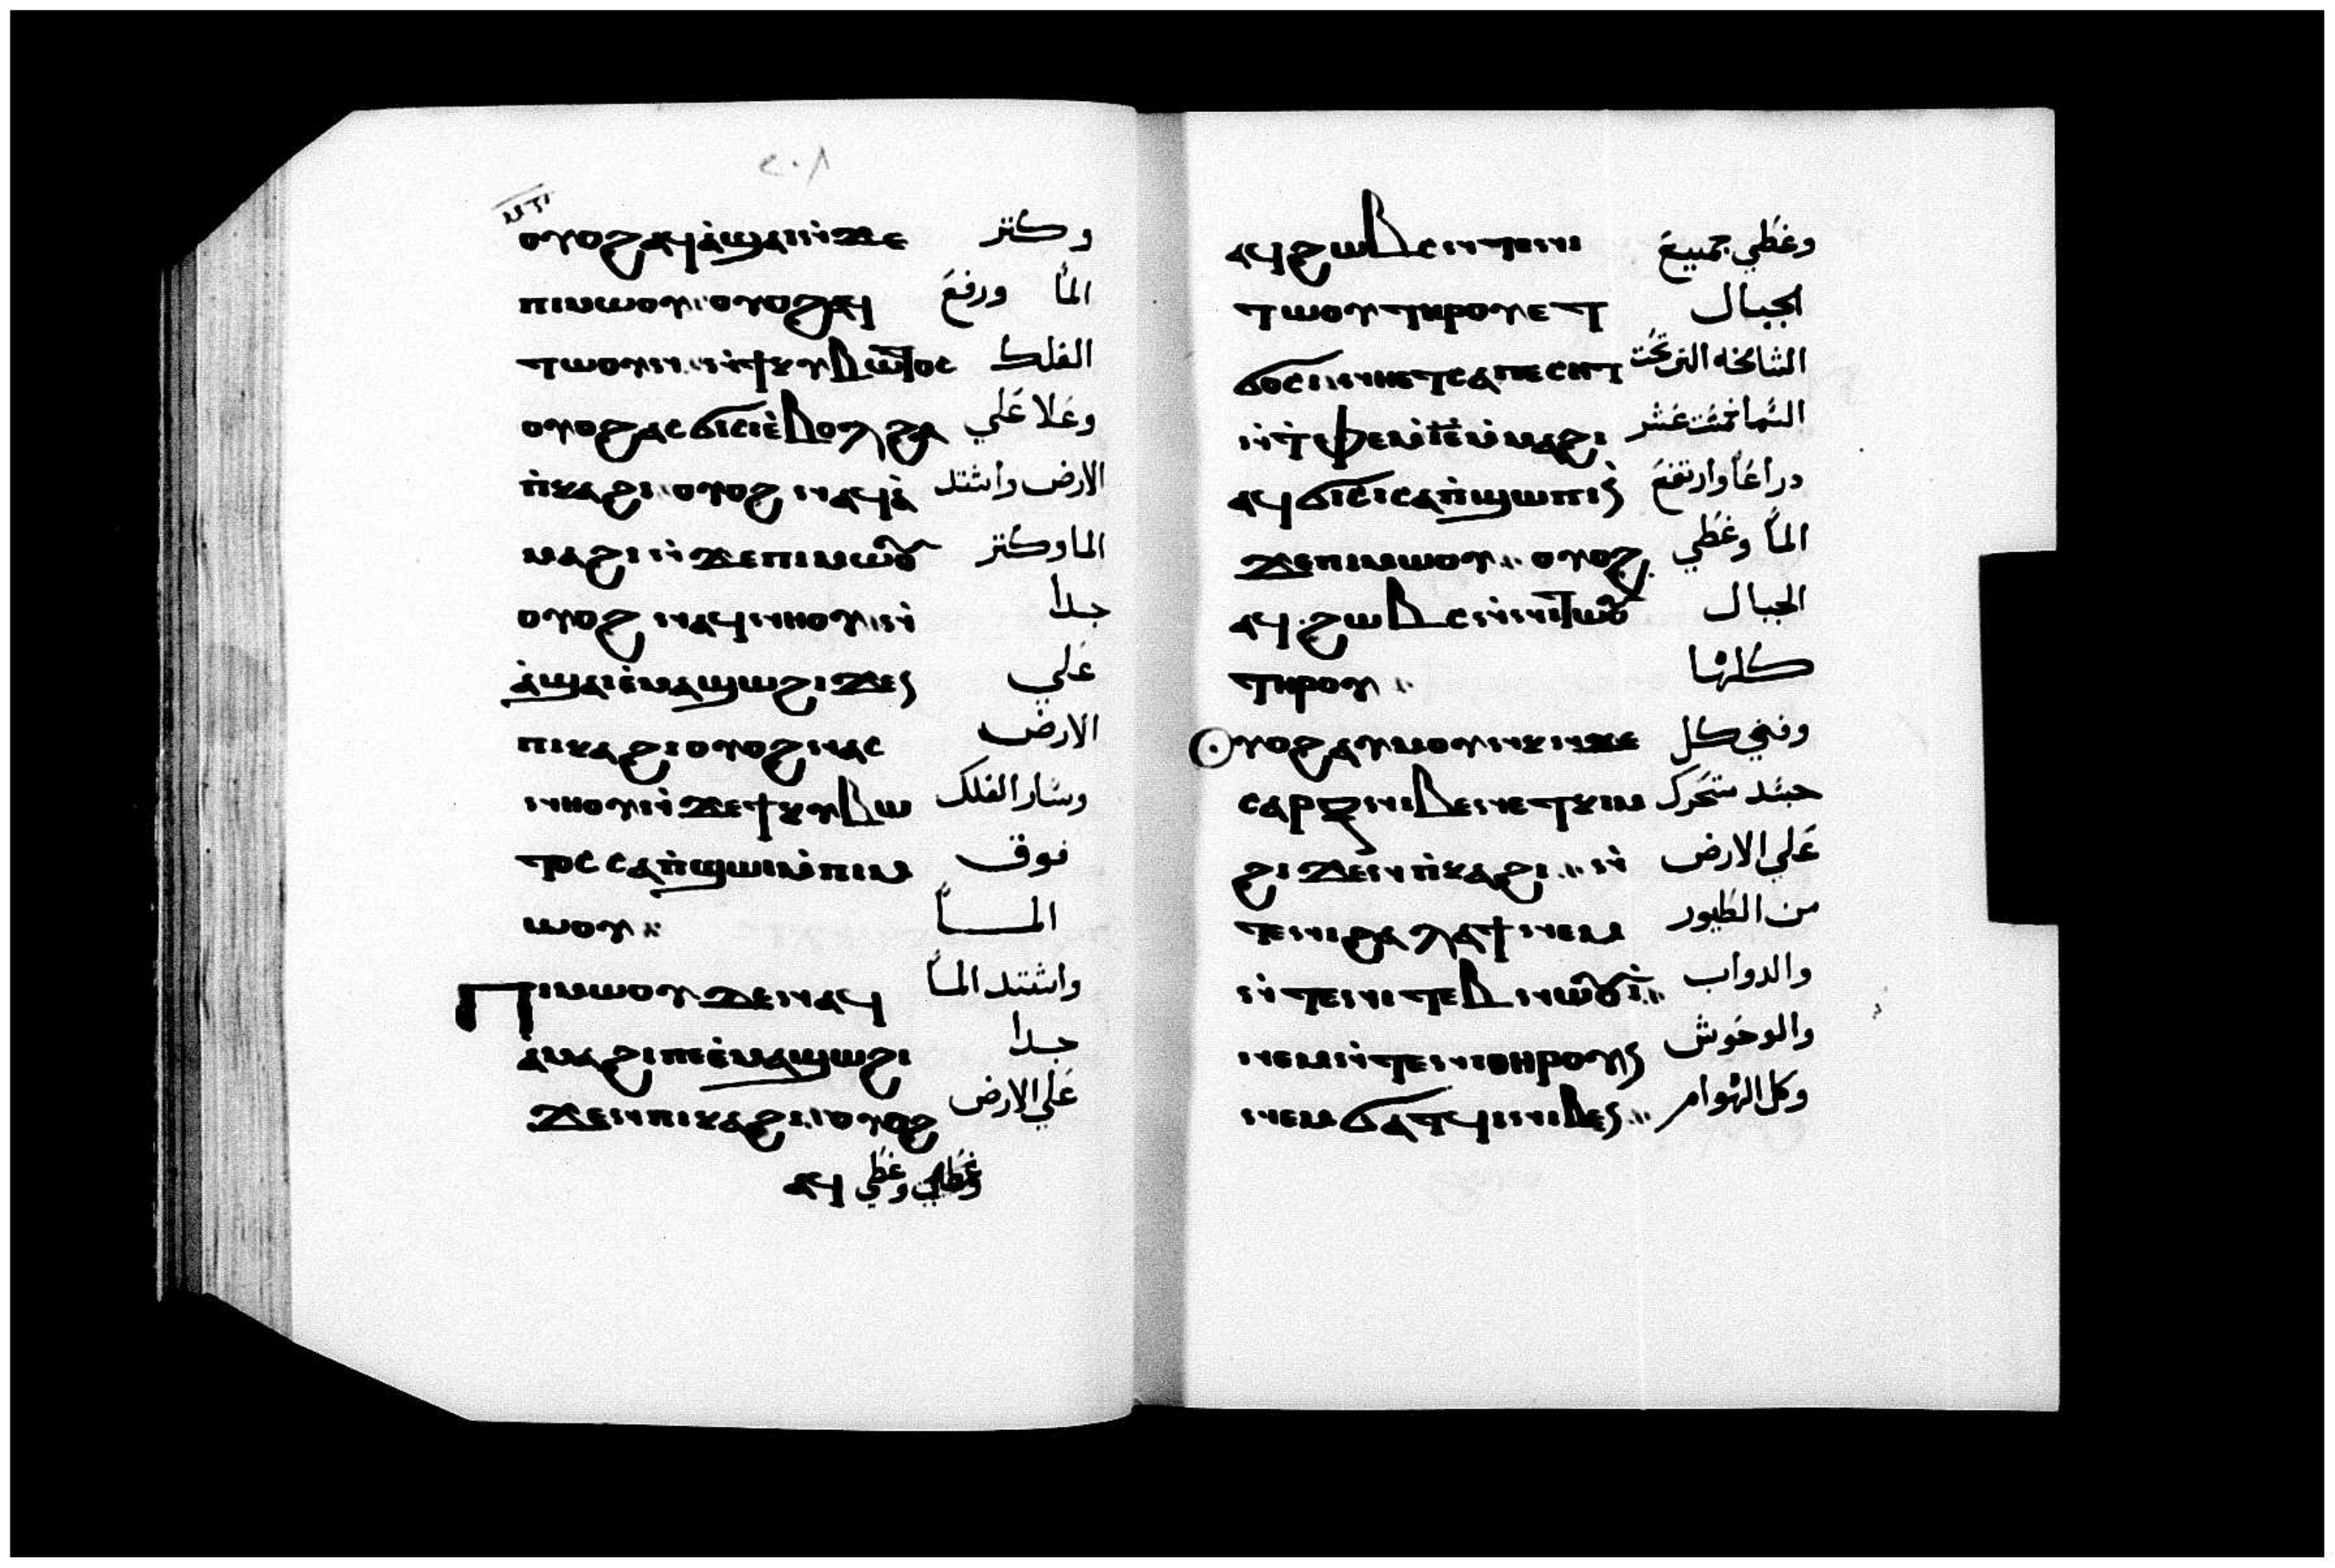 ٢٠٨
ⲟⲩⲟϩ ⲁϥⲁ̀ϣⲁⲓ ⲛ̀ϫⲉ وكثر
ⲡⲓⲙⲱⲟⲩ ⲟⲩⲟϩ ⲁϥ الما ورفع
ⲧⲱⲟⲩⲛ ⲛ̀ϯⲕⲩⲃⲱⲧⲟⲥ الفلك
ⲟⲩⲟϩ ⲁⲥϭⲓⲥⲓ ⲉ̀ⲃⲟⲗ ϩⲁ وعلا علي
ⲡ̀ⲕⲁϩⲓ ⲟⲩⲟϩ ⲛⲁϥⲁ̀ الارض واشتد
ⲙⲁϩⲓ ⲛ̀ϫⲉ ⲡⲓⲙⲱⲟⲩ الما وكثر
ⲟⲩⲟϩ ⲛⲁϥⲛⲏⲟⲩ ⲛ̀ جدا
ⲁ̀ϣⲁⲓ ⲉ̀ⲙⲁϣⲱ ϩⲓϫⲉⲛ علي
ⲡⲓⲕⲁϩⲓ ⲟⲩⲟϩ ⲛⲁⲥ الارض
ⲛⲏⲟⲩ ⲛ̀ϫⲉ ϯⲕⲩⲃⲱ وسار الفلك
ⲧⲟⲥ ⲥⲁⲡ̀ϣⲱⲓ ⲙ̀ⲡⲓⲙ فوق
ⲱⲟⲩ المـا
ⲡⲓⲙⲱⲟⲩ ⲇⲉ ⲛⲁϥ واشتد الما
ⲁ̀ⲙⲁϩⲓ ⲡⲉ ⲉ̀ⲙⲁϣⲱ ϩⲓ جدا
ϫⲉⲛ ⲡⲓⲕⲁϩⲓ ⲟⲩⲟϩ علي الارض
ⲁϥ وغطي وغطي
ⲁϥϩⲱⲃⲥ ⲛ̀ⲛⲓ وغطي جميع
ⲧⲱⲟⲩ ⲧⲏⲣⲟⲩ ⲉⲧ الجبال
ϭⲟⲥⲓ ⲛⲏⲉⲧⲥⲁⲡⲉⲥⲏⲧ الشامخه التي تحت
ⲛ̀ⲧⲫⲉ ⲙ̀ⲓⲉ ⲙ̀ⲙⲁϩⲓ السما خمست عشر
ⲁϥϭⲓⲥⲓ ⲥⲁⲡ̀ϣⲱⲓ ⲛ̀ دراعا وارتفع
ϫⲉ ⲡⲓⲙⲱⲟⲩ ⲟⲩⲟϩ الما وغطي
ⲁϥϩⲱⲃⲥ ⲛ̀ⲛⲓⲧⲱⲟⲩ الجبال
ⲧⲏⲣⲟⲩ كلها
ⲟⲩⲟϩ ⲁⲩⲙⲟⲩ ⲛ̀ϫⲉ وفني كل
ⲥⲁⲣⲝ ⲛⲓⲃⲉⲛ ⲉⲧⲕⲓⲙ جسد يتحرك
ϩⲓϫⲉⲛ ⲡ̀ⲕⲁϩⲓ ⲛ̀ علي الارض
ⲧⲉ ⲛⲓϩⲁⲗⲁϯ ⲛⲉⲙ من الطيور
ⲛ̀ⲧⲉ ⲛⲓⲧⲉⲃⲛⲱⲟⲩⲓ̀ والدواب
ⲛⲉⲙ ⲛ̀ⲧⲉ ⲛⲓⲑⲏⲣⲓⲟⲛ والوحوش
ⲛⲉⲙ ϭⲁⲧϥⲓ ⲛⲓⲃⲉⲛ وكل الهوام